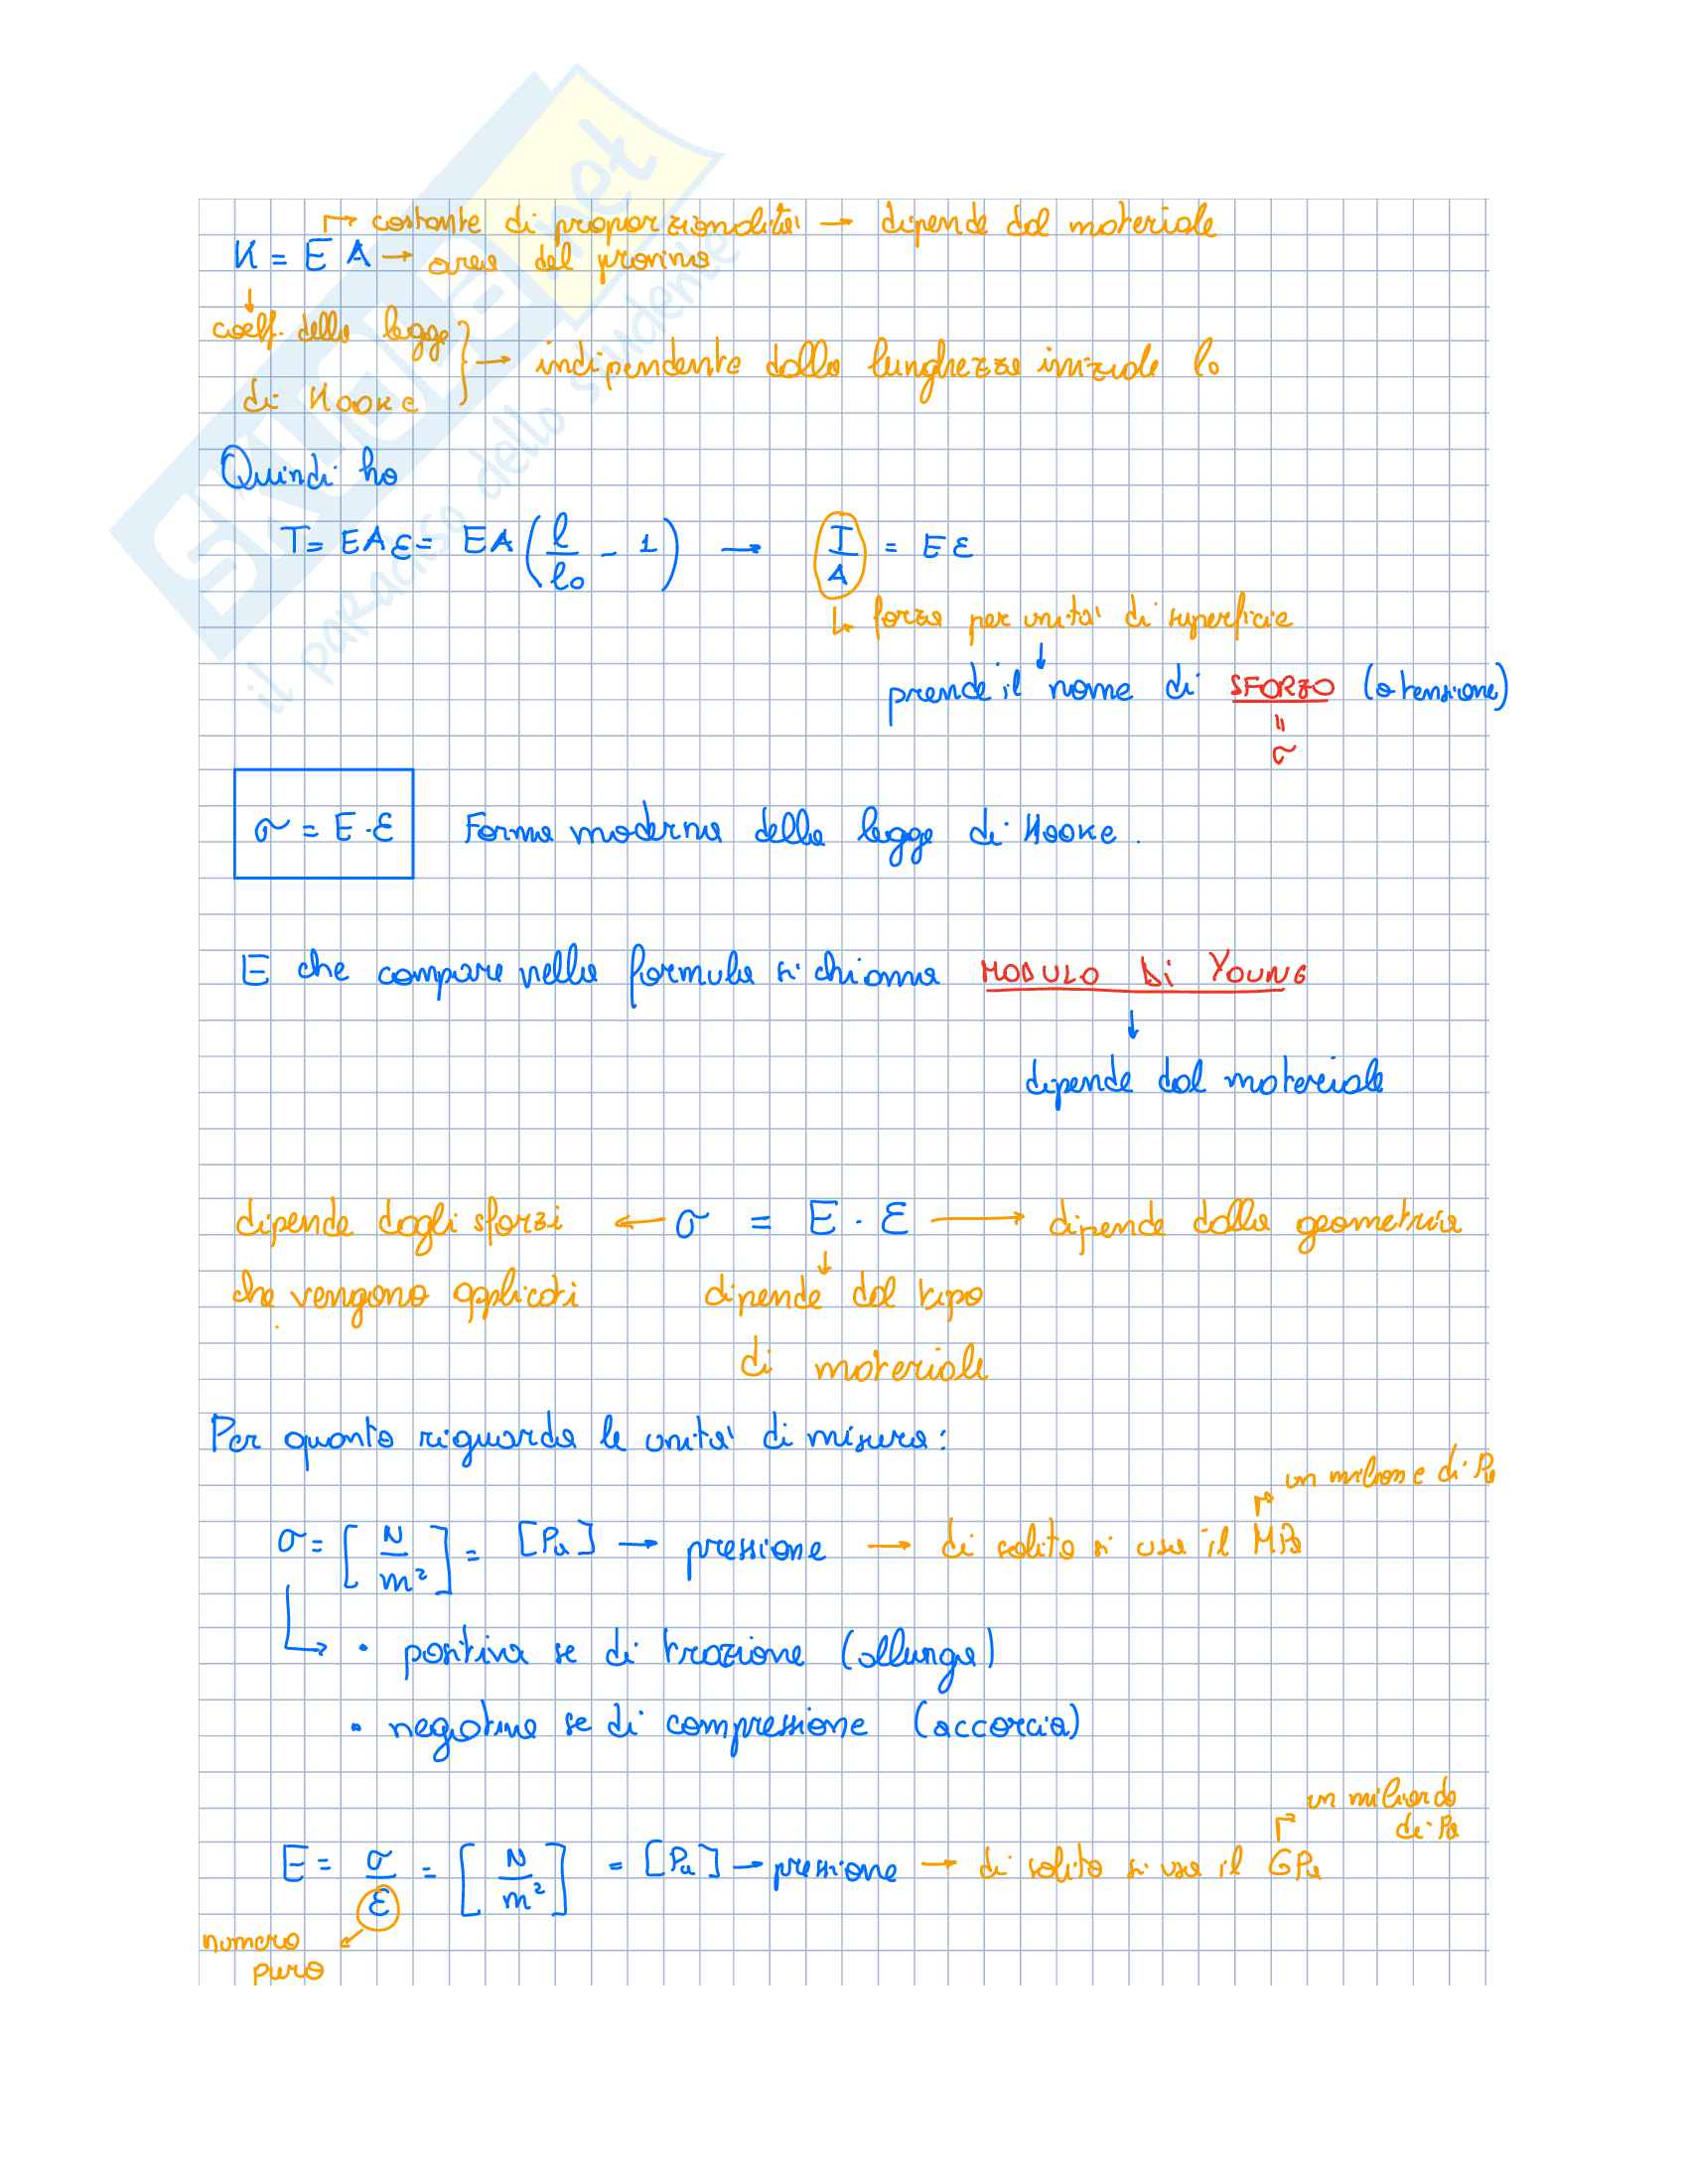 ↱ costante di proporzionalità → dipende dal materiale
K = E A → area del provino
↓
coeff. della legge
di Hooke } → indipendente dalla lunghezza iniziale l₀
Quindi ho
T = EAε = EA (l/l₀ - 1) → T/A = Eε
↳ forza per unità di superficie
↓
prende il nome di SFORZO (o tensione)
"
σ
σ = E · ε Forma moderna della legge di Hooke.
E che compare nella formula si chiama MODULO Di YOUNG
↓
dipende dal materiale
dipende dagli sforzi ← σ = E · ε → dipende dalla geometria
che vengono applicati ↓ dipende dal tipo
di materiale
Per quanto riguarda le unità di misura:
↱ un milione di Pa
σ = [N/m²] = [Pa] → pressione → di solito si usa il MPa
↳ • positiva se di trazione (allunga)
• negativa se di compressione (accorcia)
↱ un miliardo
di Pa
E = σ/ε = [N/m²] = [Pa] → pressione → di solito si usa il GPa
numero
puro
SKUOLA.net
il paradiso dello studente